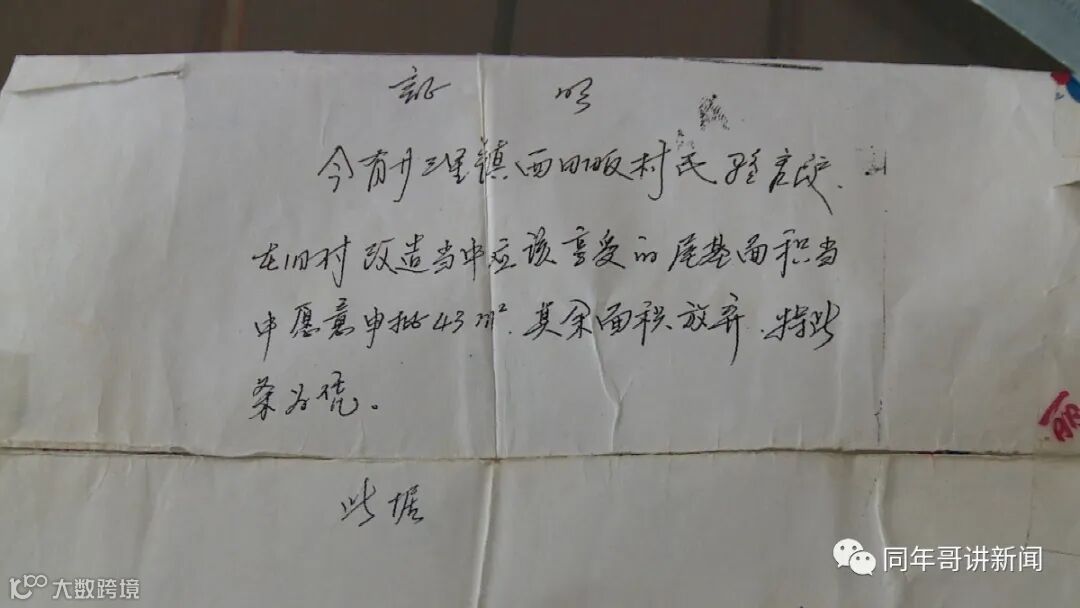 证 明
今有廿三里镇西田畈村民
在旧村改造当中应该享受的屋基面积当
中愿意申批43m².其余面积放弃.特此
条为凭。
此据
同年哥讲新闻
大数跨境